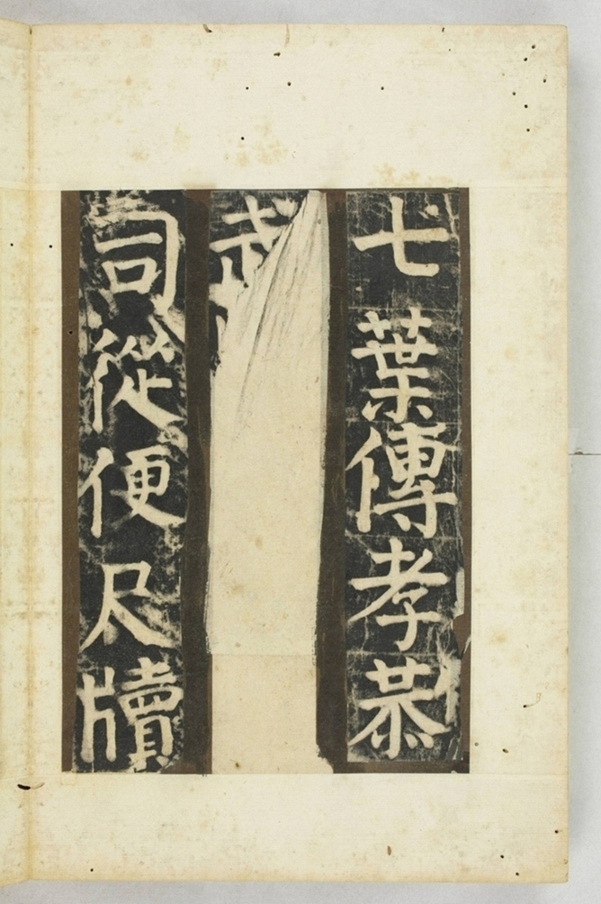 七葉傳孝恭
司從便尺牘